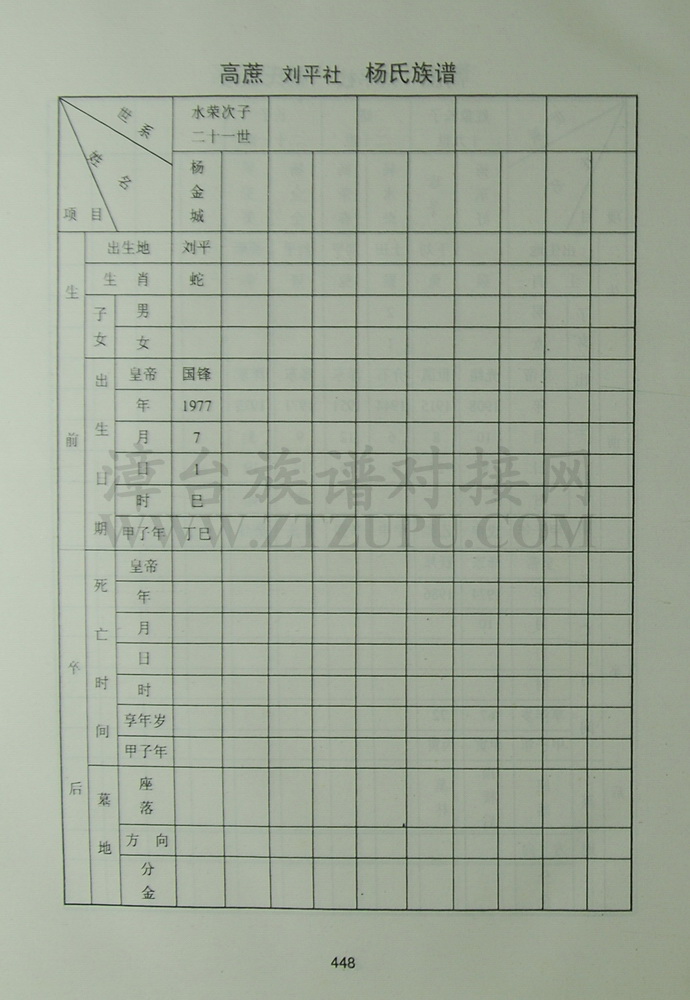 高蔗 刘平社 杨氏族谱
世系
姓名
项目
水荣次子
二十一世
杨金城
生前
出生地 刘平
生肖 蛇
子女
男
女
出生日期
皇帝 国锋
年 1977
月 7
日 1
时 巳
甲子年 丁巳
卒后
死亡时间
皇帝
年
月
日
时
享年岁
甲子年
墓地
座落
方向
分金
漳台族谱对接网
WWW.ZTZUPU.COM
448